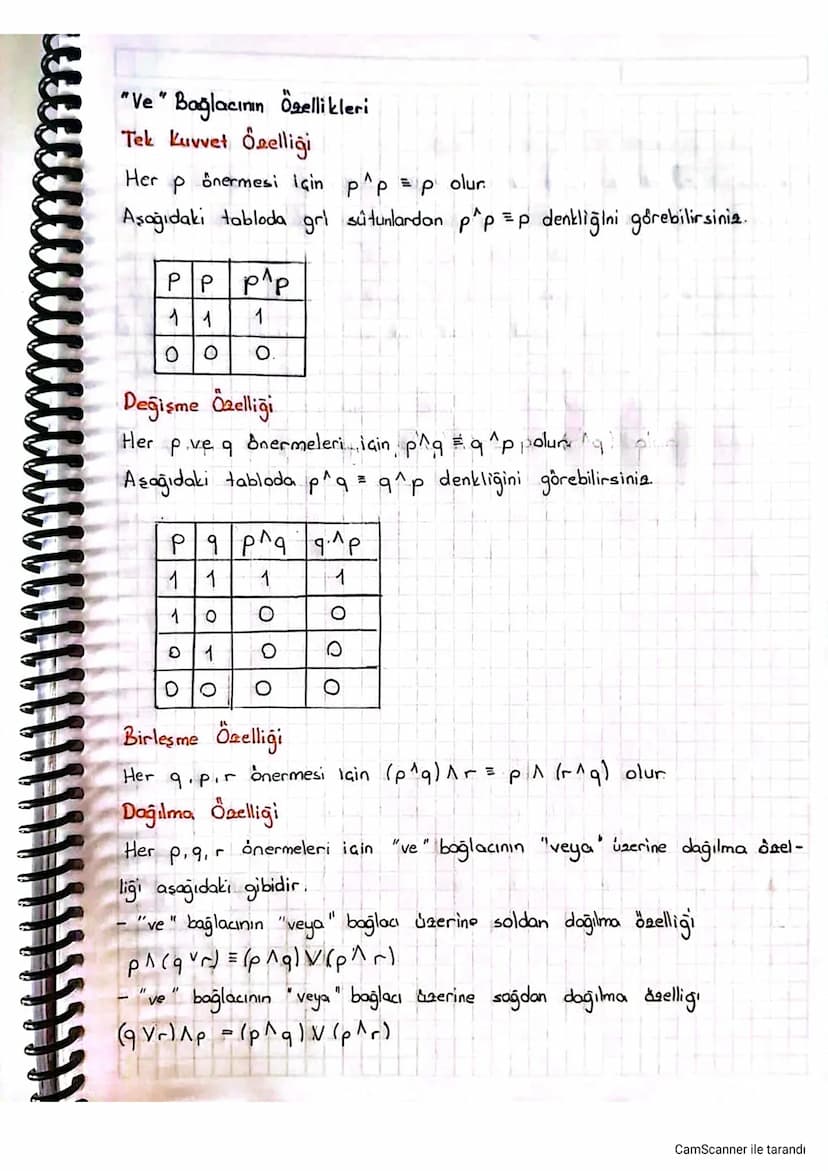 "Ve" Bağlacının Özellikleri
Tek Kuvvet Özelliği
Her p önermesi için p^p ≡ p olur.
Aşağıdaki tabloda gri sütunlardan p^p ≡ p denkliğini görebilirsiniz.
p p p^p
1 1 1
0 0 0.
Değişme Özelliği
Her p ve q önermeleri için p^q ≡ q^p olur
Aşağıdaki tabloda p^q ≡ q^p denkliğini görebilirsiniz.
p q p^q q^p
1 1 1 1
1 0 0 0
0 1 0 0
0 0 0 0
Birleşme Özelliği
Her q, p, r önermesi için (p^q) ∧ r ≡ p ∧ (r^q) olur.
Dağılma Özelliği
Her p, q, r önermeleri için "ve" bağlacının "veya" üzerine dağılma özel-
liği aşağıdaki gibidir.
- "ve" bağlacının "veya" bağlacı üzerine soldan dağılma özelliği
p^(q∨r) ≡ (p^q)∨(p^r)
- "ve" bağlacının "veya" bağlacı üzerine sağdan dağılma özelliği
(q∨r)∧p = (p^q)∨(p^r)
CamScanner ile tarandı